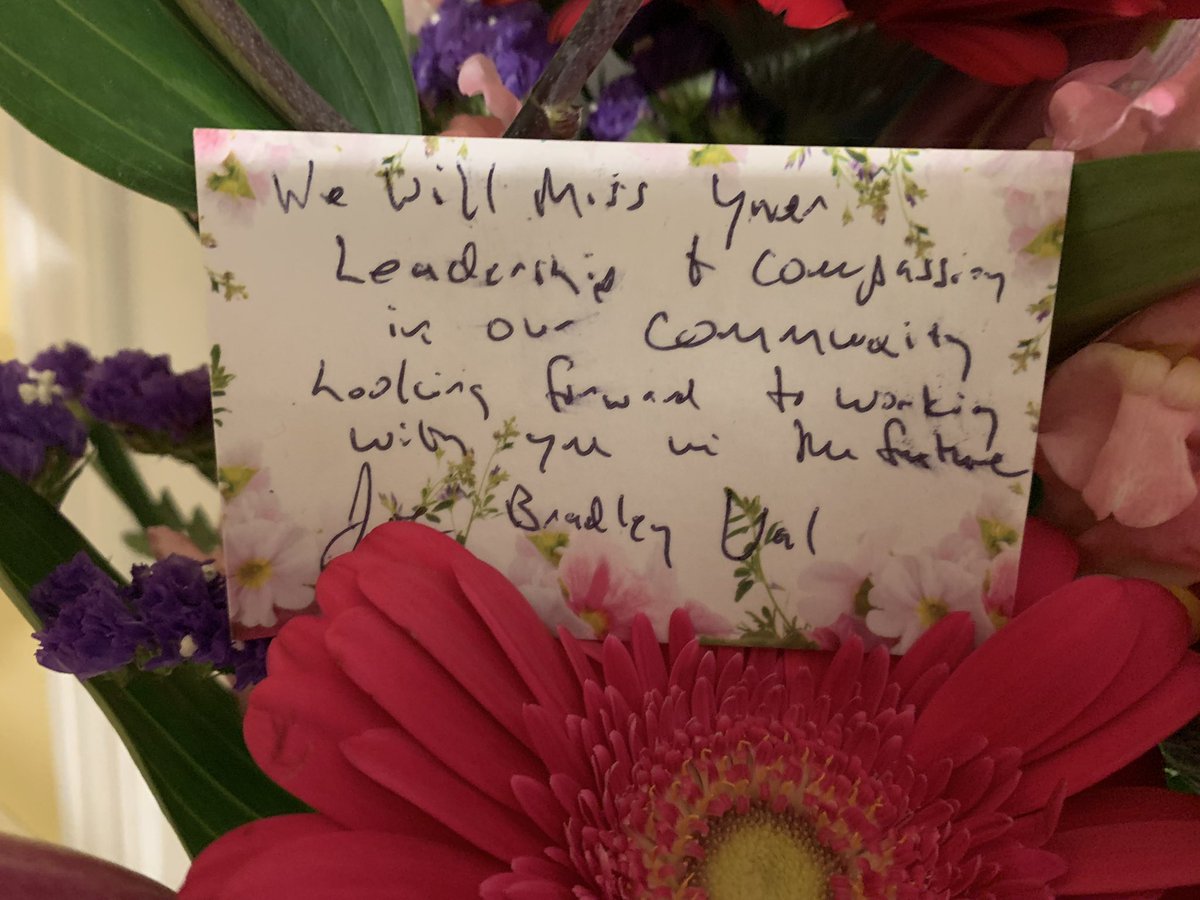 We Will Miss Your
Leadership & Compassion
in our Community
Looking forward to working
with you in the future
Bradley